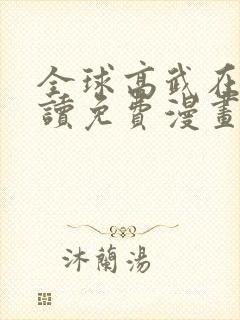 全球高武在
讀免費漫畫
沐蘭湯